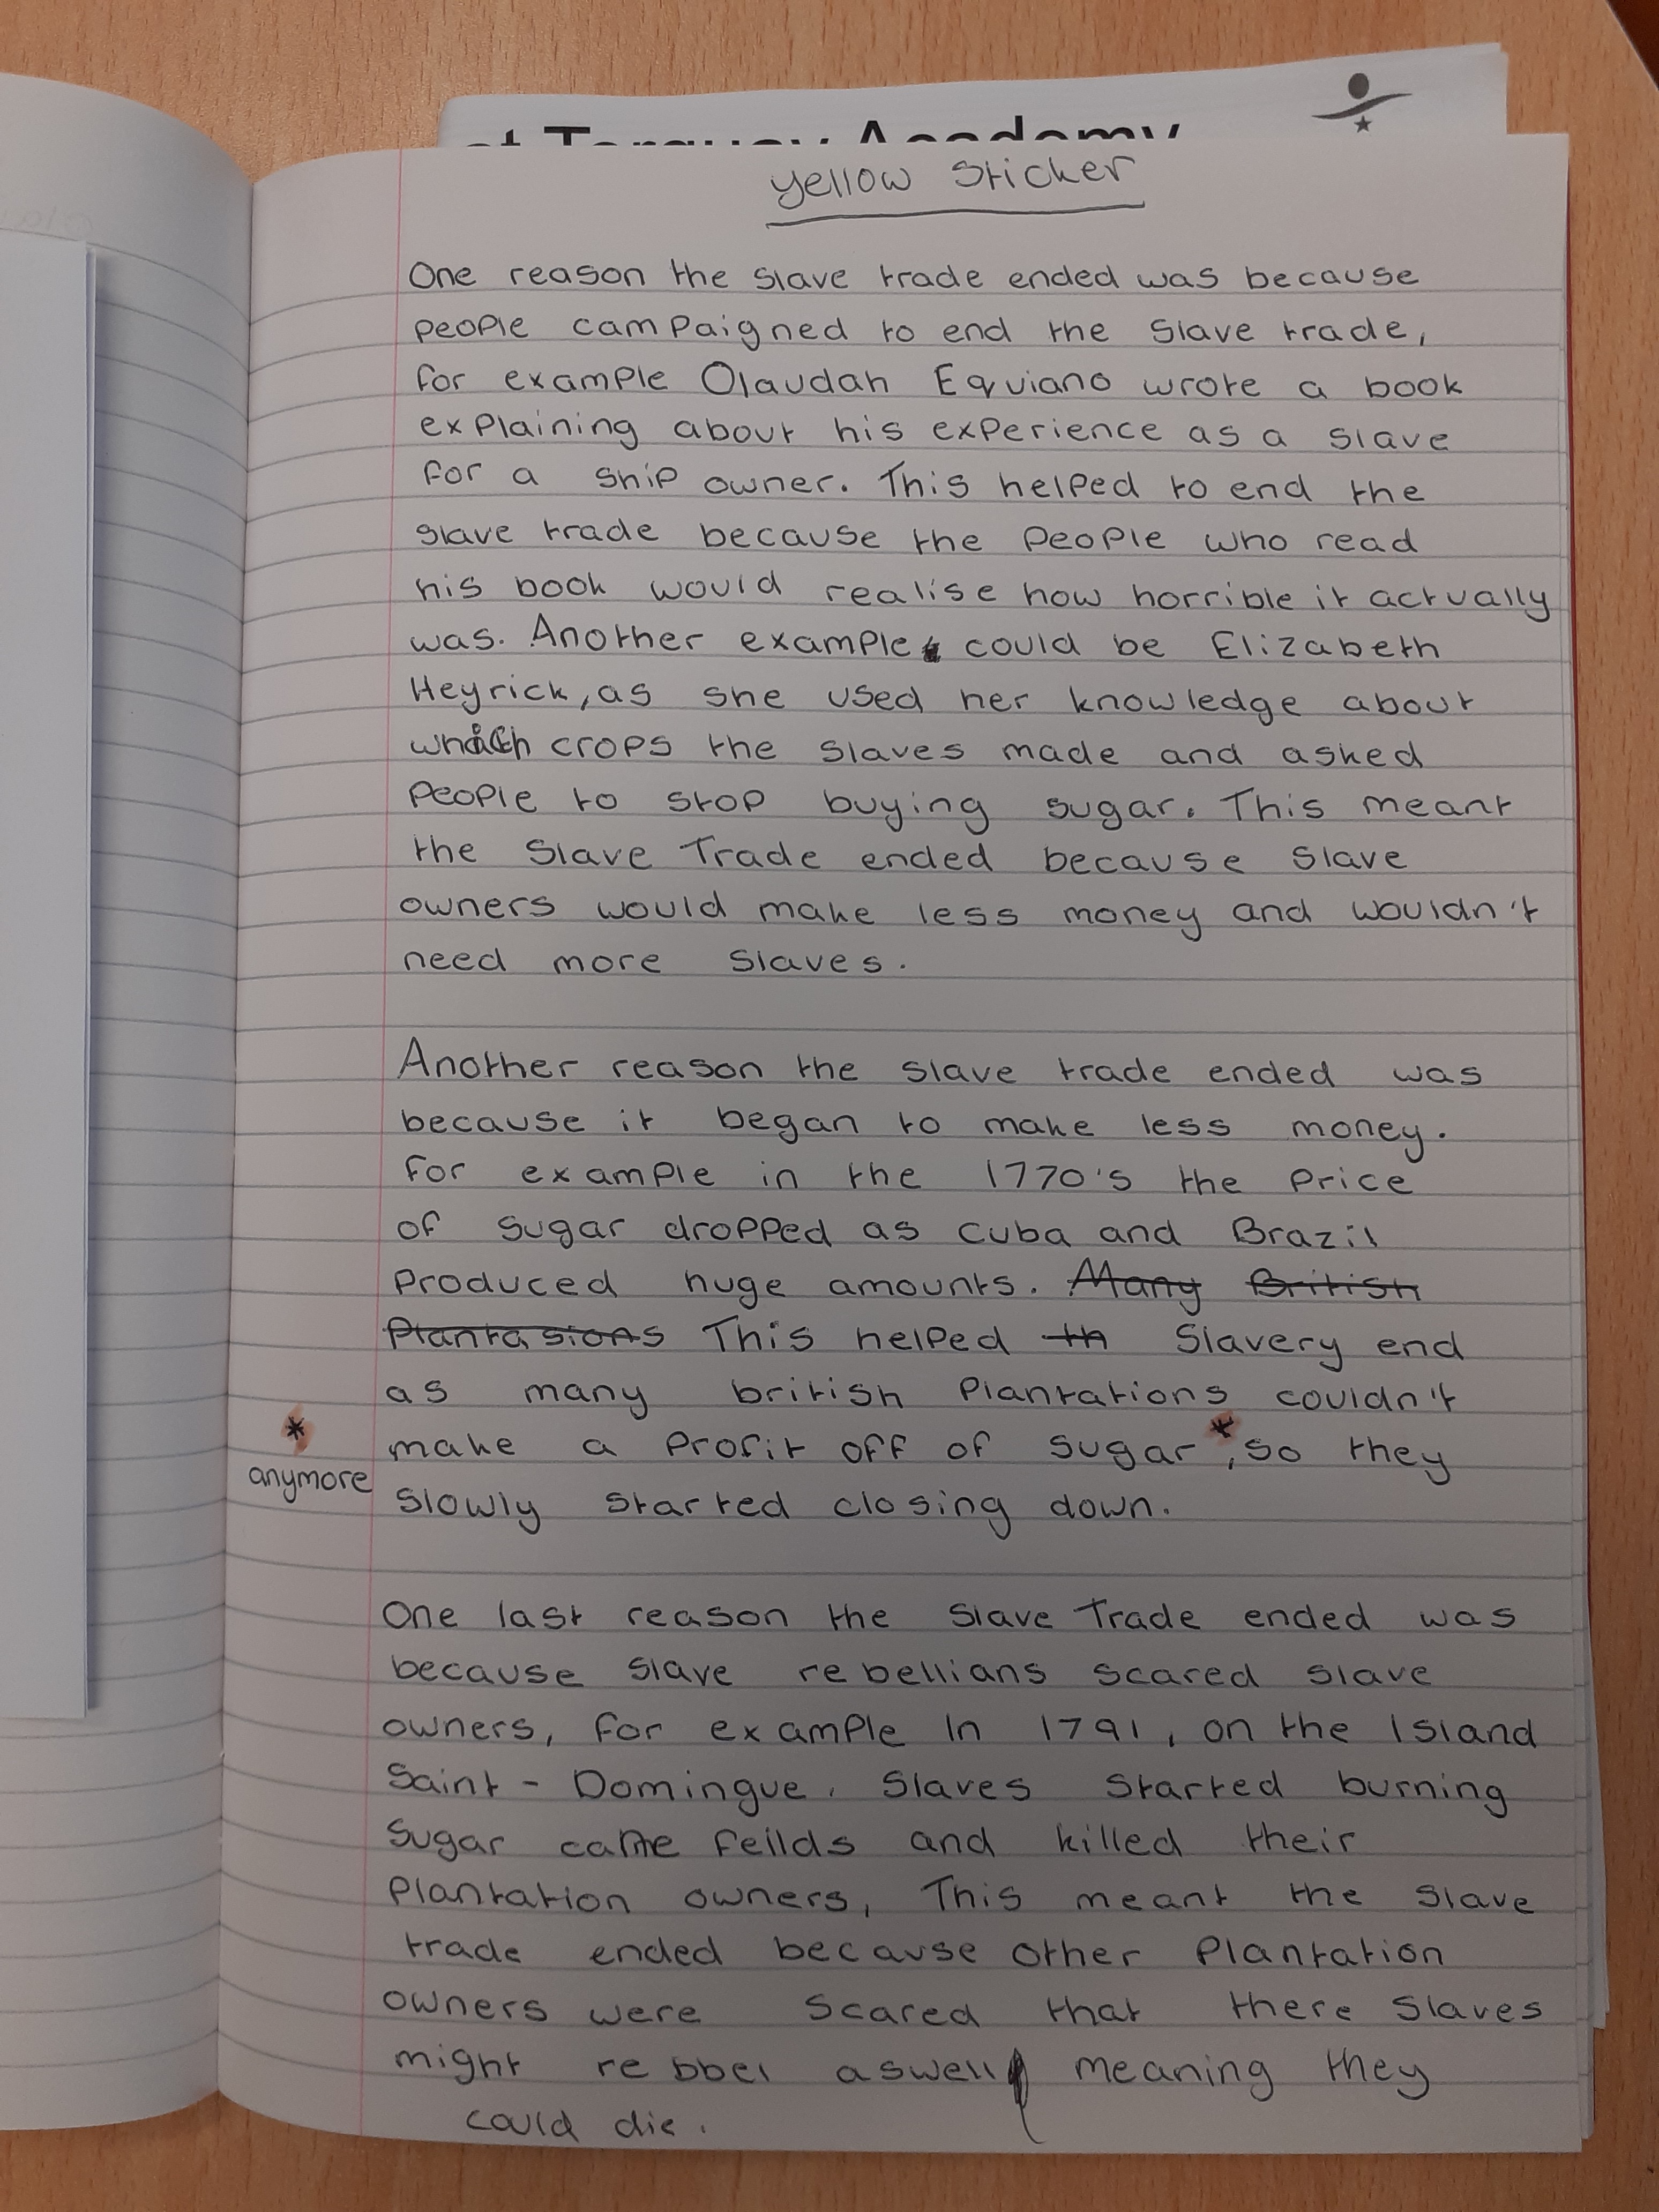 Torquay Academy
Yellow Sticker
One reason the slave trade ended was because
people campaigned to end the slave trade,
for example Olaudah Equiano wrote a book
explaining about his experience as a slave
for a ship owner. This helped to end the
slave trade because the people who read
his book would realise how horrible it actually
was. Another example could be Elizabeth
Heyrick, as she used her knowledge about
which crops the slaves made and asked
people to stop buying sugar. This meant
the Slave Trade ended because slave
owners would make less money and wouldn't
need more slaves.
Another reason the slave trade ended was
because it began to make less money.
For example in the 1770's the price
of sugar dropped as Cuba and Brazil
produced huge amounts. Many British
Plantasions This helped th Slavery end
as many british plantations couldn't
* make a profit off of sugar *, so they
anymore slowly started closing down.
One last reason the Slave Trade ended was
because slave rebellians scared slave
owners, for example In 1791, on the Island
Saint - Domingue. Slaves started burning
sugar cane feilds and killed their
plantation owners, This meant the slave
trade ended because other plantation
owners were scared that there slaves
might rebbel aswell meaning they
could die.